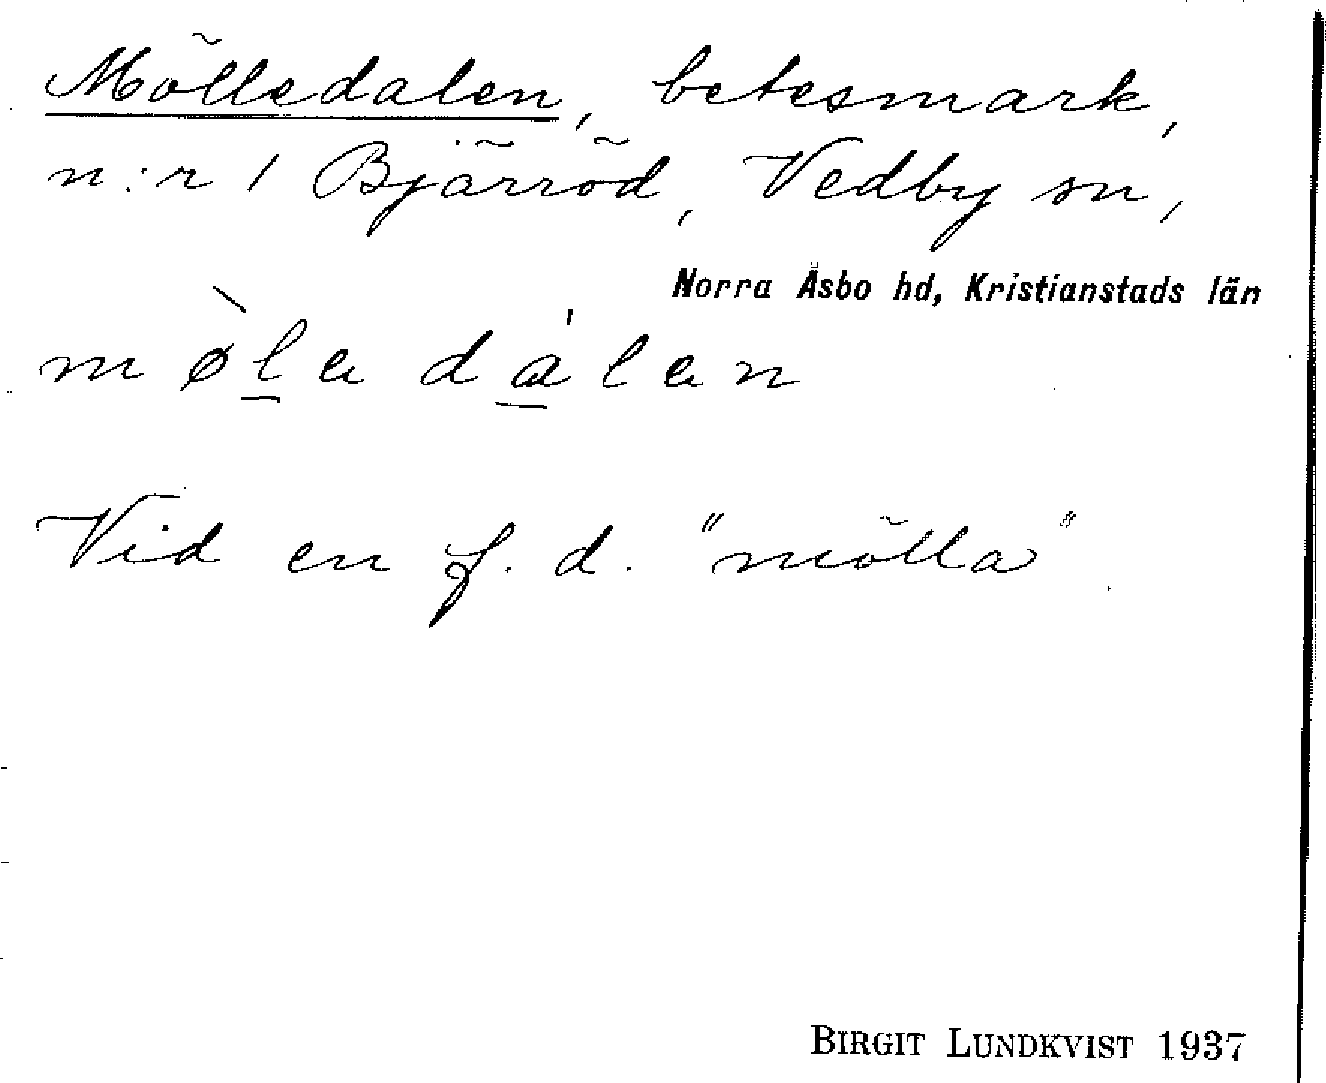 Mölledalen, betesmark,
n:r 1 Bjärröd, Vedby sn,
Norra Åsbo hd, Kristianstads län
mø̀l̲a dá̲lan
Vid en f. d. "mölla".
BIRGIT LUNDKVIST 1937